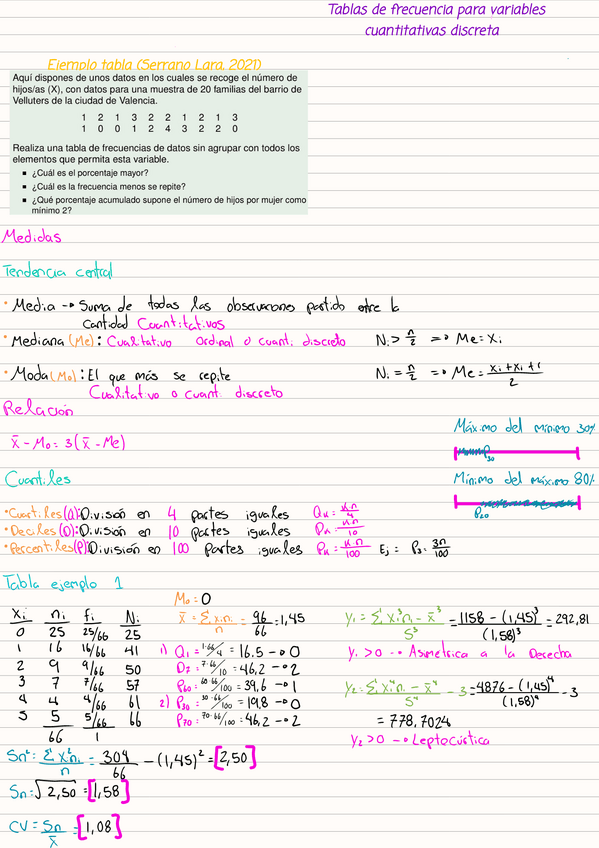 Tablas de frecuencia para variables
cuantitativas discreta
Ejemplo tabla (Serrano Lara, 2021)
Aquí dispones de unos datos en los cuales se recoge el número de
hijos/as (X), con datos para una muestra de 20 familias del barrio de
Velluters de la ciudad de Valencia.
1 2 1 3 2 2 1 2 1 3
1 0 0 1 2 4 3 2 2 0
Realiza una tabla de frecuencias de datos sin agrupar con todos los
elementos que permita esta variable.
¿Cuál es el porcentaje mayor?
¿Cuál es la frecuencia menos se repite?
¿Qué porcentaje acumulado supone el número de hijos por mujer como
mínimo 2?
Medidas
Tendencia central
• Media → Suma de todas las observaciones partido entre la
cantidad Cuantitativos
• Mediana (Me): Cualitativo ordinal o cuant. discreto Ni > n/2 => Me = Xi
• Moda (Mo): El que más se repite Ni = n/2 => Me = Xi + Xi + 1 / 2
Cualitativo o cuant. discreto
Relación
x̄ - Mo = 3(x̄ - Me)
Máximo del mínimo 30%
P30
Cuantiles
Mínimo del máximo 80%
P20
• Cuartiles (Q): División en 4 partes iguales Qk = k·n/4
• Deciles (D): División en 10 partes iguales Dk = k·n/10
• Percentiles (P): División en 100 partes iguales Pk = k·n/100 Ej = P3 = 3n/100
Tabla ejemplo 1
Mo = 0
Xi ni fi Ni x̄ = Σ xi ni / n = 96/66 = 1,45
0 25 25/66 25
1 16 16/66 41 1) Q1 = 1·66/4 = 16.5 → 0
2 9 9/66 50 D7 = 7·66/10 = 46,2 → 2
3 7 7/66 57 P60 = 60·66/100 = 39,6 → 1
4 4 4/66 61 2) P30 = 30·66/100 = 19,8 → 0
5 5 5/66 66 P70 = 70·66/100 = 46,2 → 2
66 1
γ1 = Σ xi³ ni - x̄³ / S³ = 1158 - (1,45)³ / (1,58)³ = 292,81
γ1 > 0 → Asimétrica a la Derecha
γ2 = Σ xi⁴ ni - x̄⁴ / S⁴ - 3 = 4876 - (1,45)⁴ / (1,58)⁴ - 3
= 778,7024
γ2 > 0 → Leptocúrtica
Sn² = Σ xi² ni / n = 304/66 - (1,45)² = [2,50]
Sn = √2,50 = [1,58]
CV = Sn / x̄ = [1,08]